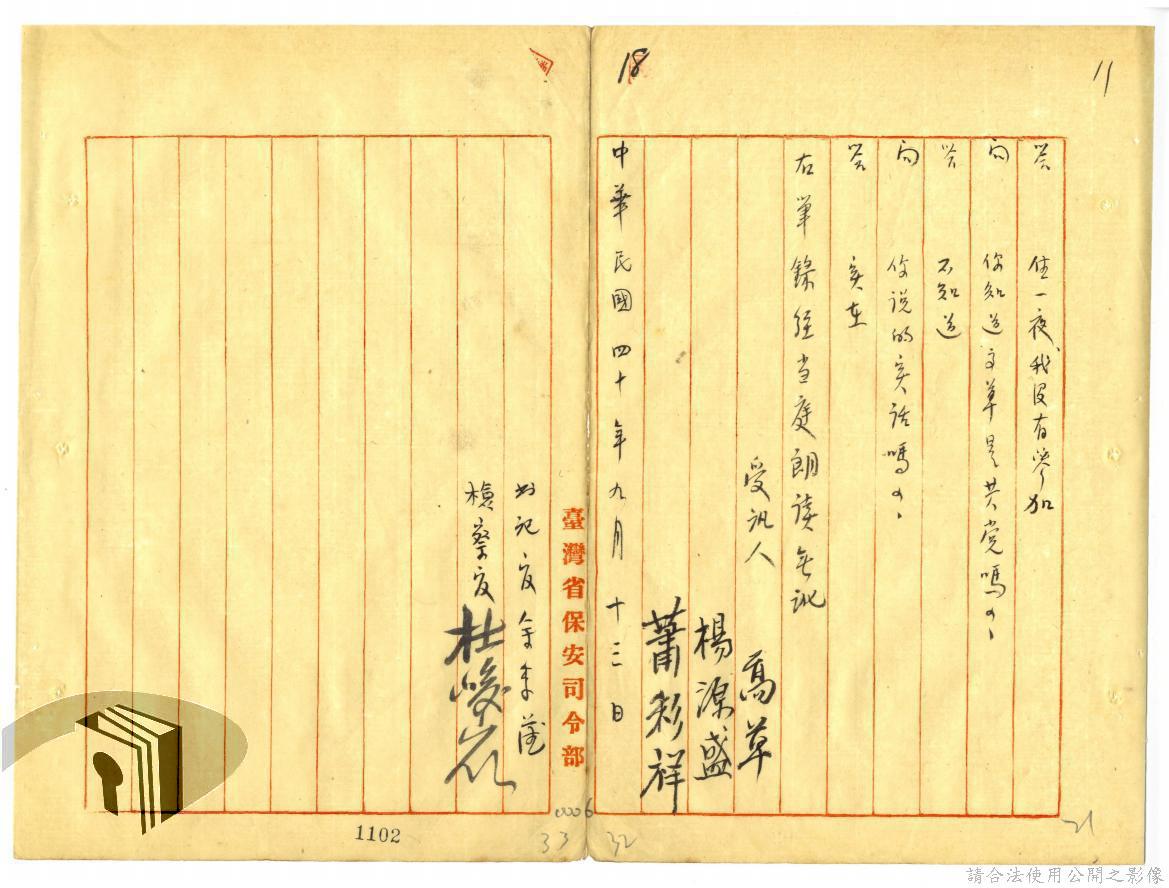 11
18
答 住一夜我沒有參加
問 你知道文草是共党嗎？
答 不知道
問 你說的実话嗎？
答 実在
右筆錄经当庭朗读无讹
受讯人
高草
楊源盛
蕭彩祥
中華民國四十年九月十三日
臺灣省保安司令部
书记官
檢察官 杜
0006
1102
33
32
21
請合法使用公開之影像